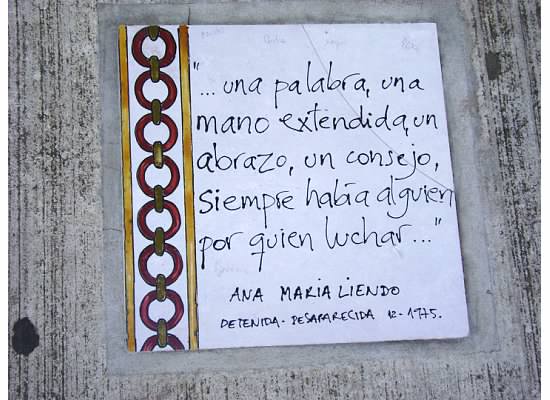 "... una palabra, una
mano extendida, un
abrazo, un consejo,
siempre había alguien
por quien luchar..."
ANA MARIA LIENDO
DETENIDA - DESAPARECIDA 12-1975.